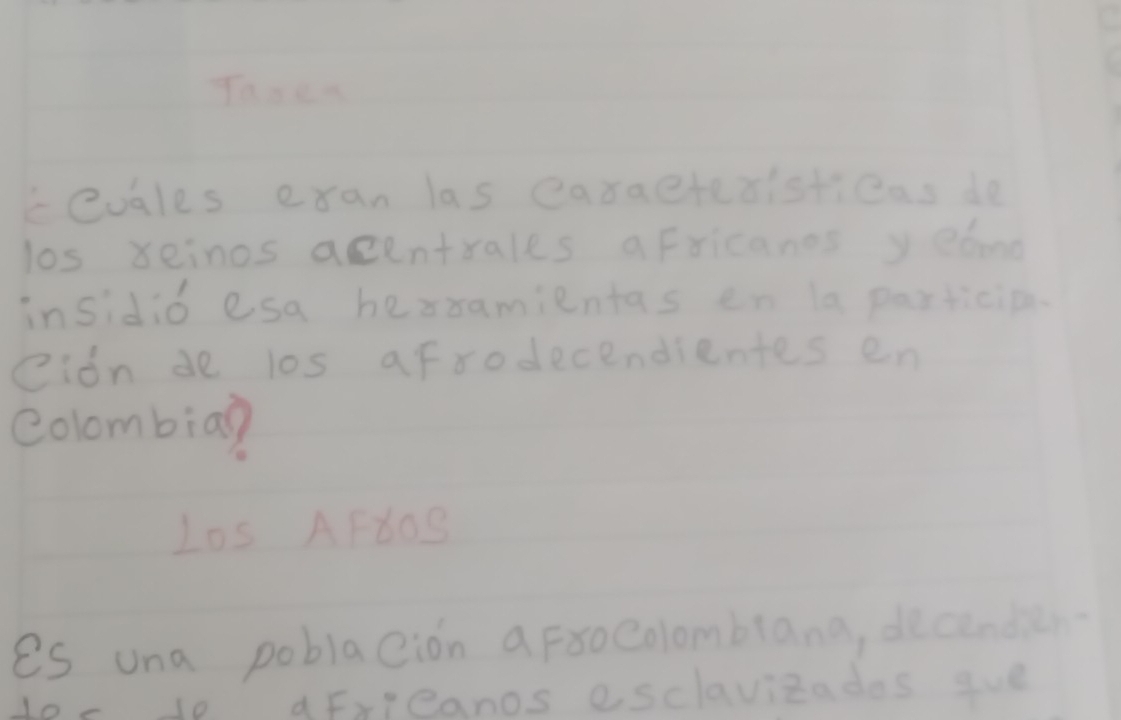 Tarea
¿Cuáles eran las características de
los reinos acentrales africanos y cómo
insidió esa herramientas en la particip-
ción de los afrodecendientes en
Colombia?
Los AFROS
Es una población afrocolombiana, decendien-
tes de africanos esclavizados que